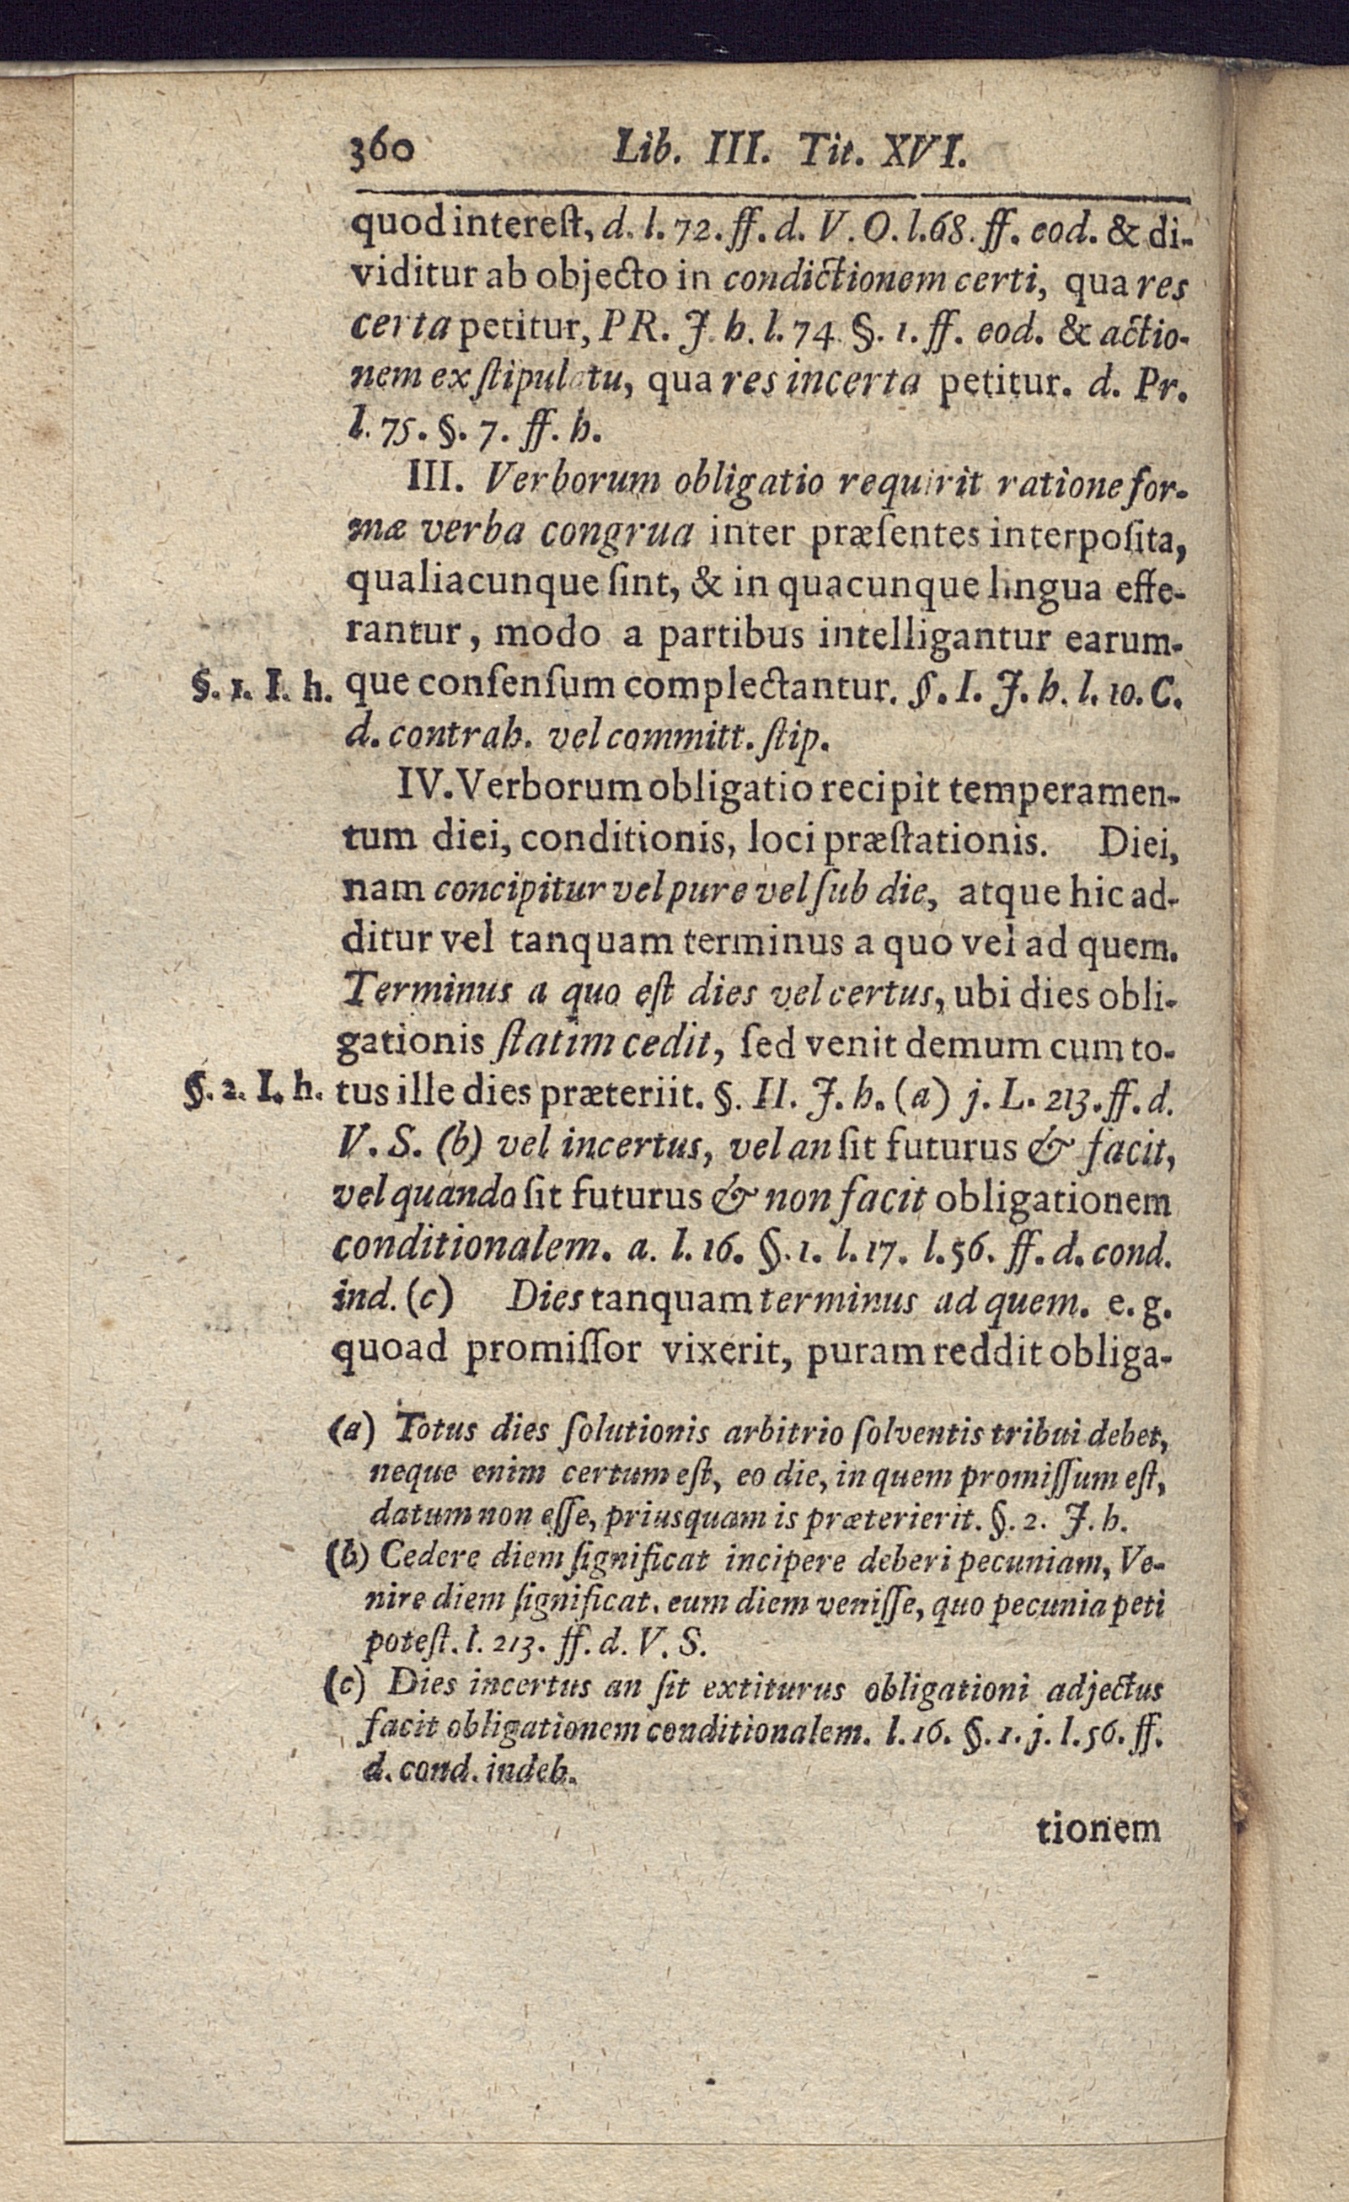 360 Lib. III. Tit. XVI.
quod intereſt, d. l. 72. ff. d. V. O. l. 68. ff. eod. & di-
viditur ab objecto in condictionem certi, qua res
certa petitur, PR. J. h. l. 74. §. 1. ff. eod. & actio-
nem ex ſtipulatu, qua res incerta petitur. d. Pr.
l. 75. §. 7. ff. h.
III. Verborum obligatio requirit ratione for-
mæ verba congrua inter præſentes interpoſita,
qualiacunque ſint, & in quacunque lingua effe-
rantur, modo a partibus intelligantur earum-
§. 1. I. h. que conſenſum complectantur. §. I. J. h. l. 10. C.
d. contrah. vel committ. ſtip.
IV. Verborum obligatio recipit temperamen-
tum diei, conditionis, loci præſtationis. Diei,
nam concipitur vel pure vel ſub die, atque hic ad-
ditur vel tanquam terminus a quo vel ad quem.
Terminus a quo eſt dies vel certus, ubi dies obli-
gationis ſtatim cedit, ſed venit demum cum to-
§. 2. I. h. tus ille dies præteriit. §. II. J. h. (a) j. L. 213. ff. d.
V. S. (b) vel incertus, vel an ſit futurus & facit,
vel quando ſit futurus & non facit obligationem
conditionalem. a. l. 16. §. 1. l. 17. l. 56. ff. d. cond.
ind. (c) Dies tanquam terminus ad quem. e. g.
quoad promiſſor vixerit, puram reddit obliga-
(a) Totus dies ſolutionis arbitrio ſolventis tribui debet,
neque enim certum eſt, eo die, in quem promiſſum eſt,
datum non eſſe, priusquam is præterierit. §. 2. J. h.
(b) Cedere diem ſignificat incipere deberi pecuniam, Ve-
nire diem ſignificat. eum diem veniſſe, quo pecunia peti
poteſt. l. 213. ff. d. V. S.
(c) Dies incertus an ſit extiturus obligationi adjectus
facit obligationem conditionalem. l. 16. §. 1. j. l. 56. ff.
d. cond. indeb.
tionem